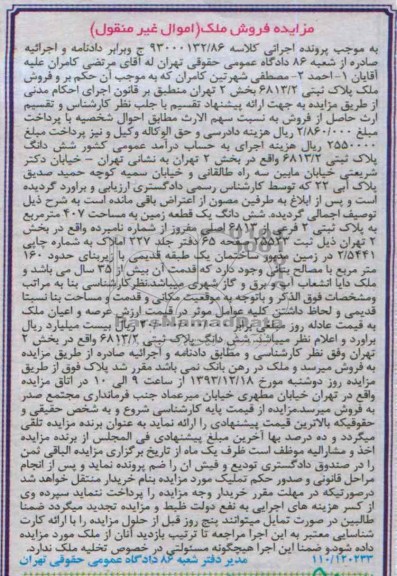 مزایده فروش ملک(اموال غیر منقول)
به موجب پرونده اجرائی کلاسه ۹۳۰۰۰۱۳۲/۸۶ ج وبرابر دادنامه و اجرائیه
صادره از شعبه ۸۶ دادگاه عمومی حقوقی تهران له آقای مرتضی کامران علیه
آقایان ۱-احمد ۲- مصطفی شهرتین کامران که به موجب آن حکم بر و فروش
ملک پلاک ثبتی ۶۸۱۳/۲ بخش ۲ تهران منطبق بر قانون اجرای احکام مدنی
از طریق مزایده به جهت ارائه پیشنهاد تقسیم با جلب نظر کارشناس و تقسیم
ارث حاصل از فروش به نسبت سهم الارث مطابق احوال شخصیه با پرداخت
مبلغ ۲/۸۶۰/۰۰۰ ریال هزینه دادرسی و حق الوکاله وکیل و نیز پرداخت مبلغ
۲۵۵۰۰۰۰ ریال هزینه اجرای به حساب درآمد عمومی کشور شش دانگ
پلاک ثبتی ۶۸۱۳/۲ واقع در بخش ۲ تهران به نشانی تهران - خیابان دکتر
شریعتی خیابان مابین سه راه طالقانی و خیابان سمیه کوچه حمید صدیق
پلاک آبی ۲۲ که توسط کارشناس رسمی دادگستری ارزیابی و براورد گردیده
است و پس از ابلاغ به طرفین مصون از اعتراض باقی مانده است به شرح ذیل
توصیف اجمالی گردیده. شش دانگ یک قطعه زمین به مساحت ۴۰۷ مترمربع
به پلاک ثبتی ۲ فرعی از اصلی مفروز از شماره نامبرده واقع در بخش
۲ تهران ذیل ثبت صفحه ۶۵ دفتر جلد ۲۲۷ املاک به شماره چاپی
۲/۵۴۴۱ در زمین مزبور ساختمان یک طبقه قدیمی با زیربنای حدود ۱۶۰
متر مربع با مصالح بنائی وجود دارد که قدمت آن بیش از ۳۵ سال می باشد و
ملک دایا انشعاب آب و برق و گاز شهری میباشد.نظر کارشناسی بنا به مراتب
ومشخصات فوق الذکر و باتوجه به موقعیت مکانی و قدمت و مساحت بنا نسبتا
قدیمی و لحاظ داشتن کلیه عوامل موثر در قیمت ارزش عرصه و اعیان ملک
به قیمت عادله روز به مبلغ ریال بیست میلیارد ریال
براورد و اعلام نظر میباشد. شش دانگ پلاک ثبتی ۶۸۱۳/۲ واقع در بخش ۲
تهران وفق نظر کارشناسی و مطابق دادنامه و اجرائیه صادره از طریق مزایده
به فروش میرسد و ملک در رهن بانک نمی باشد مقرر شد پلاک فوق از طریق
مزایده روز دوشنبه مورخ ۱۳۹۳/۱۲/۱۸ از ساعت ۹ الی ۱۰ در اتاق مزایده
واقع در تهران خیابان مطهری خیابان میرعماد جنب فرمانداری مجتمع صدر
به فروش میرسد.مزایده از قیمت پایه کارشناسی شروع و به شخص حقیقی و
حقوقیکه بالاترین قیمت پیشنهادی را ارائه نماید به عنوان برنده مزایده تلقی
میگردد و ده درصد بها آخرین مبلغ پیشنهادی فی المجلس از برنده مزایده
اخذ و مشارالیه موظف است ظرف یک ماه از تاریخ برگزاری مزایده الباقی ثمن
را در صندوق دادگستری تودیع و فیش ان را ضم پرونده نماید و پس از انجام
مراحل قانونی و صدور حکم تملیک مورد مزایده بنام خریدار منتقل خواهد شد
درصورتیکه در مهلت مقرر خریدار وجه مزایده را پرداخت ننماید سپرده وی
از کسر هزینه های اجرایی به نفع دولت ظبط و مزایده تجدید میگردد ضمنا
طالبین در صورت تمایل میتوانند پنج روز قبل از حلول مزایده را با ارائه کارت
شناسایی معتبر به این اجرا مراجعه تا ترتیب بازدید آنان از ملک مورد مزایده
داده شودو ضمنا این اجرا هیچگونه مسئولتی در خصوص تخلیه ملک ندارد.
۱۱۰/۱۲۰۲۳۳ مدیر دفتر شعبه ۸۶ دادگاه عمومی حقوقی تهران